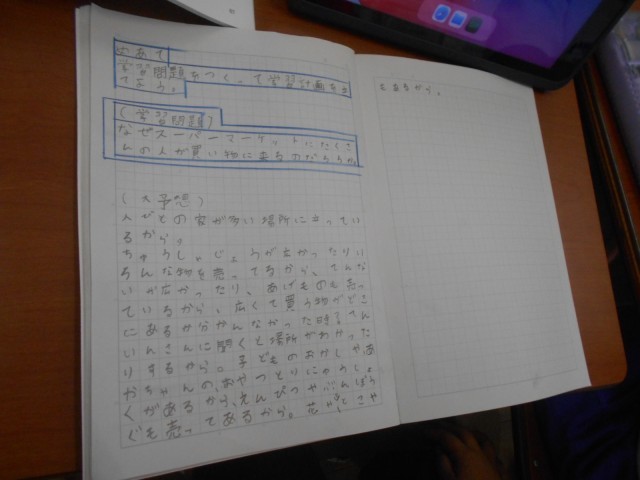 めあて
学習問題をつくって学習計画を立
てよう。
(学習問題)
なぜスーパーマーケットにたくさ
んの人が買い物に来るのだろうか。
(大予想)
人がその家が多い場所に立ってい
るから。
ちゅうしゃじょうが大かったりい
ろんな物を売ってるから、てんな
いが広かったり、あげものも売っ
ているから、広くて買う物がどこ
にあるか分かんなかった時さん
いんさんに聞くと場所がわかった
りするから。子どものおかしやあ
かちゃんの、おやつとりにゅうしょ
くがあるから、えんぴつやにんぼう
ぐも売ってあるから。花や
もあるから。